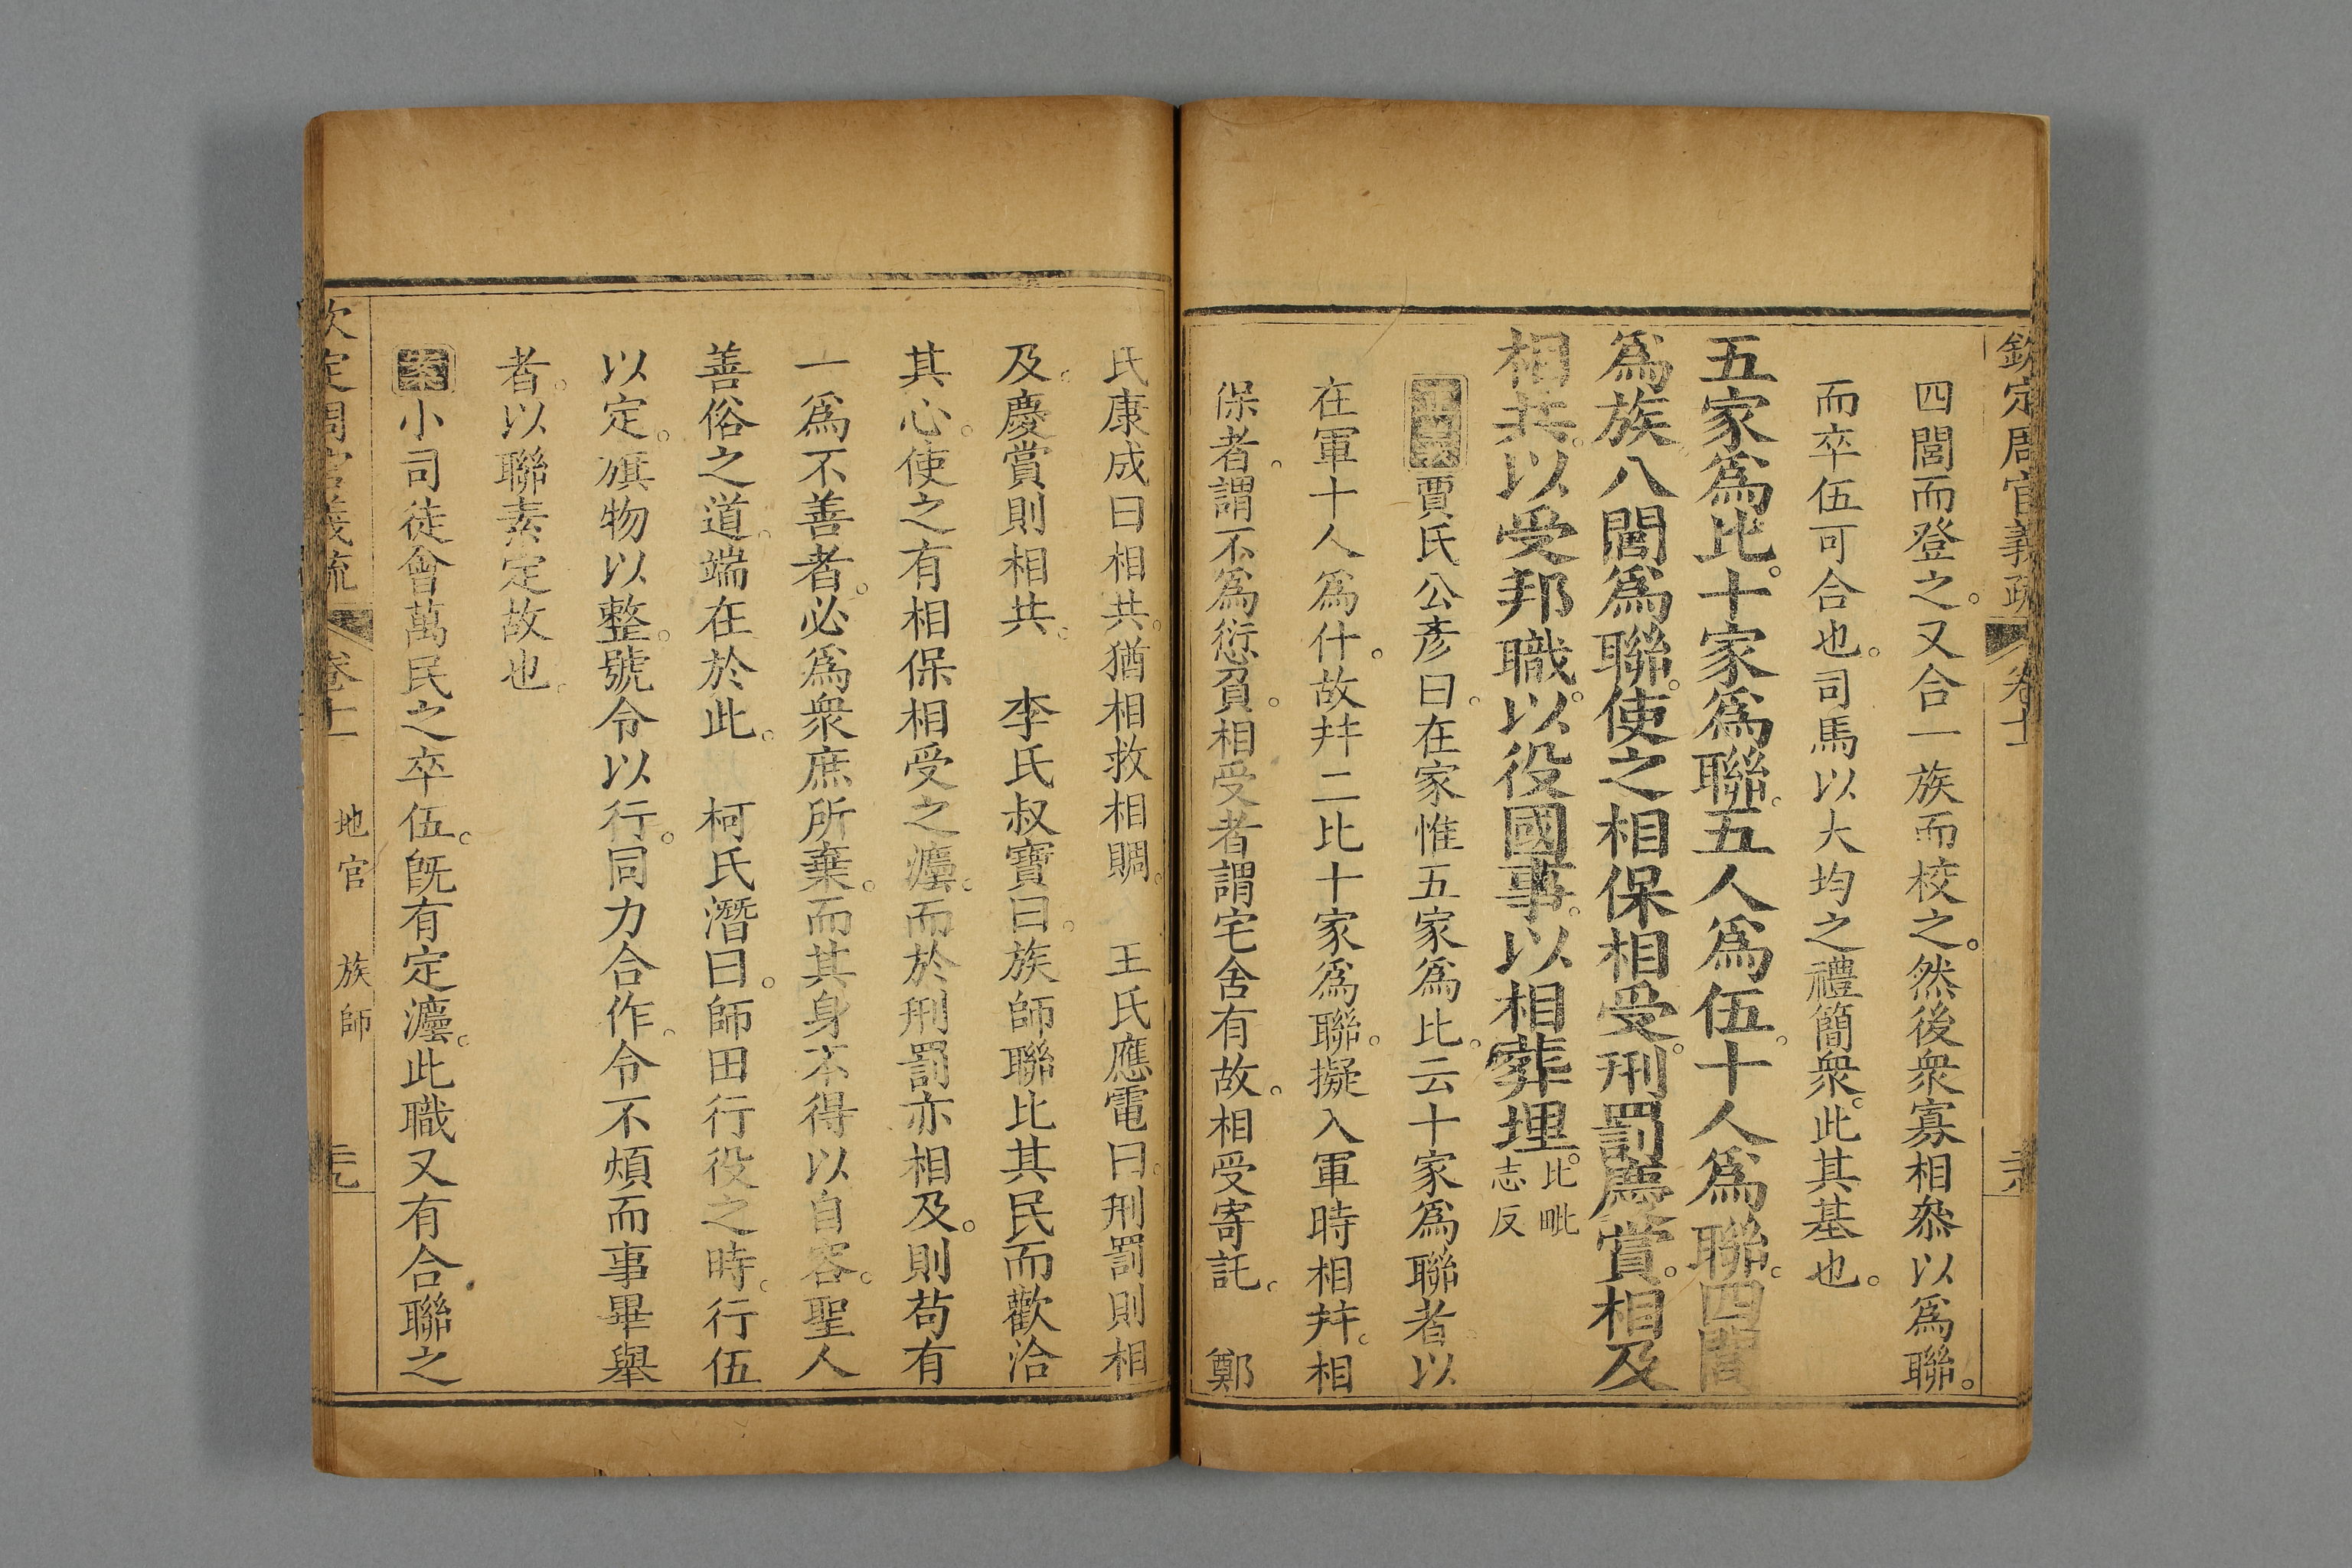 欽定周官義疏 卷十一
四閭而登之。又合一族而校之。然後衆寡相叅以爲聯。
而卒伍可合也。司馬以大均之禮簡衆。此其基也。
五家爲比。十家爲聯。五人爲伍。十人爲聯。四閭
爲族。八閭爲聯。使之相保相受。刑罰慶賞。相及
相共。以受邦職。以役國事。以相葬埋。比毗志反
賈氏公彥曰。在家惟五家爲比。云十家爲聯者。以
在軍十人爲什。故幷二比十家爲聯。擬入軍時相幷。相
保者。謂不爲愆負。相受者謂宅舍有故。相受寄託。 鄭
氏康成曰相共。猶相救相賙。 王氏應電曰。刑罰則相
及。慶賞則相共。 李氏叔寶曰。族師聯比其民而歡洽
其心。使之有相保相受之灋。而於刑罰亦相及。則苟有
一爲不善者。必爲衆庶所棄。而其身不得以自容。聖人
善俗之道。端在於此。 柯氏潛曰。師田行役之時。行伍
以定。旗物以整。號令以行。同力合作。令不煩而事畢舉
者。以聯素定故也。
案小司徒會萬民之卒伍。旣有定灋。此職又有合聯之
欽定周官義疏 卷十一 地官 族師 三九